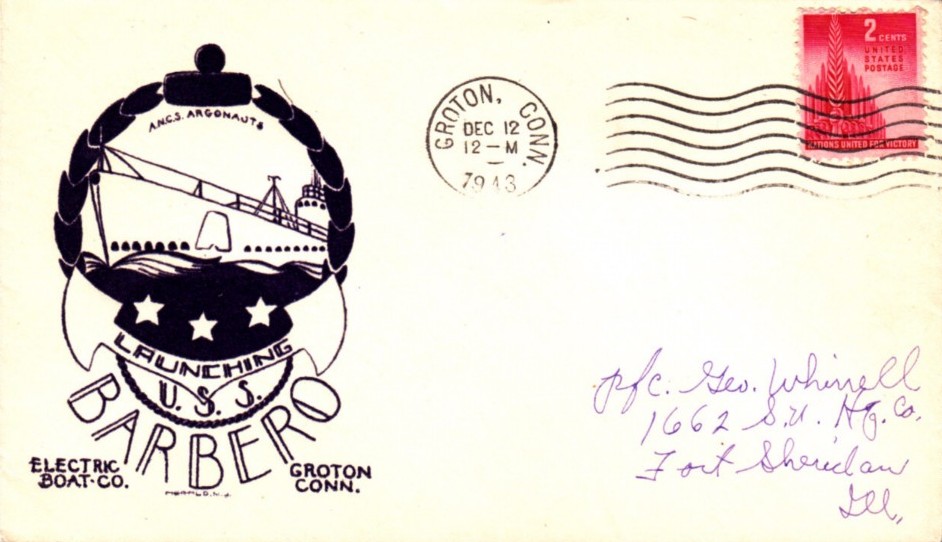 A.N.C.S. ARGONAUTS
LAUNCHING
U.S.S.
BARBERO
ELECTRIC BOAT-CO.
GROTON CONN.
GROTON, CONN.
DEC 12
12-M
1943
2 CENTS
UNITED
STATES
POSTAGE
NATIONS UNITED FOR VICTORY
Pfc. Geo. Whinell
1662 S.U. Hq. Co.
Fort Sheridan
Ill.